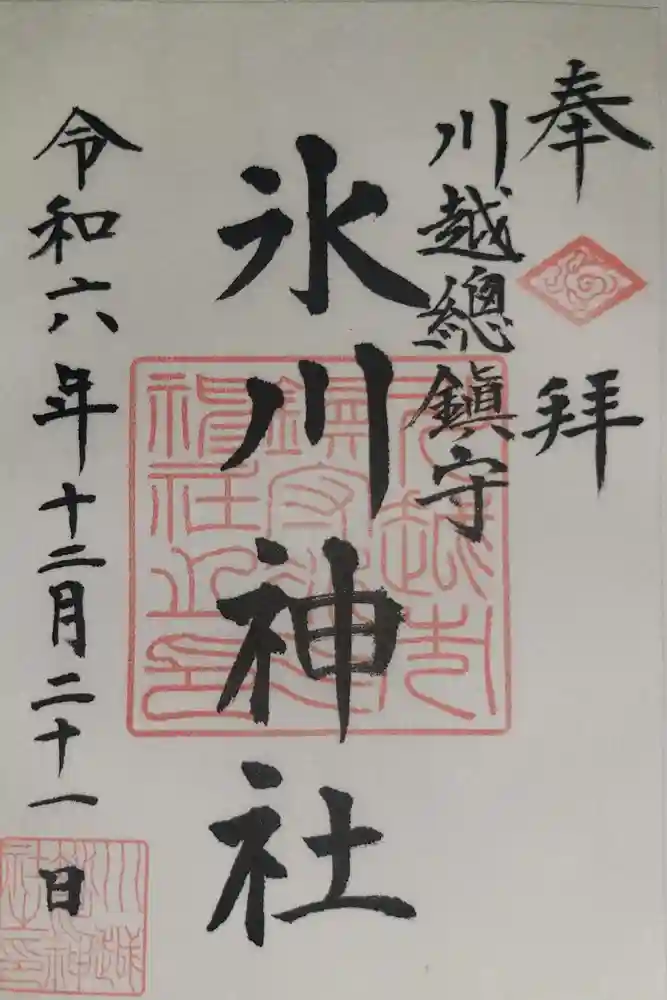 奉拜
川越總鎮守
氷川神社
令和六年十二月二十一日